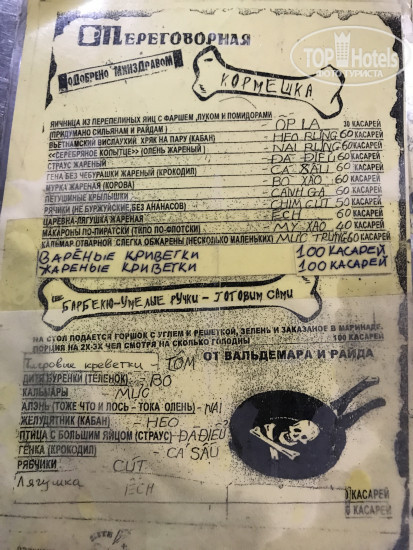 TOP Hotels
ФОТО ТУРИСТА
ПЕРЕГОВОРНАЯ
ОДОБРЕНО МИНЗДРАВОМ
КОРМЕШКА
ЯИЧНИЦА ИЗ ПЕРЕПЕЛИНЫХ ЯИЦ С ФАРШЕМ ,ЛУКОМ И ПОМИДОРАМИ
(ПРИДУМАНО СИЛЬЯНАМ И РАЙДАМ ) - OP LA 30 КАСАРЕЙ
ВЬЕТНАМСКИЙ ВИСЛАУХИЙ ХРЯК НА ПАРУ (КАБАН) - HEO RUNG 60 КАСАРЕЙ
«СЕРЕБРЯНОЕ КОПЫТЦЕ» (ОЛЕНЬ ЖАРЕНЫЙ) - NAI RUNG 60 КАСАРЕЙ
СТРАУС ЖАРЕНЫЙ - ĐÀ ĐIỂU 60 КАСАРЕЙ
ГЕНА БЕЗ ЧЕБУРАШКИ ЖАРЕНЫЙ (КРОКОДИЛ) - CÁ SẤU 60 КАСАРЕЙ
МУРКА ЖАРЕНАЯ (КОРОВА) - BÒ XÀO 60 КАСАРЕЙ
ЛЕГУШИНЫЕ КРЫЛЫШКИ - CANH GA 60 КАСАРЕЙ
РЯЧИКИ (НЕ БУРЖУЙСКИЕ,БЕЗ АНАНАСОВ) - CHIM CÚT 50 КАСАРЕЙ
ЦАРЕВНА-ЛЯГУШКА ЖАРЕНАЯ - ECH 60 КАСАРЕЙ
МАКАРОНЫ ПО-ПИРАТСКИ (ТИПО ПО-ФЛОТСКИ) - MY XÀO 40 КАСАРЕЙ
КАЛЬМАР ОТВАРНОЙ СЛЕГКА ОБЖАРЕНЫ (НЕСКОЛЬКО МАЛЕНЬКИХ) - MUC TRUNG 60 КАСАРЕЙ
ВАРЁНЫЕ КРИВЕТКИ 100 КАСАРЕЙ
ЖАРЕНЫЕ КРИВЕТКИ 100 КАСАРЕЙ
БАРБЕКЮ-УМЕЛЫЕ РУЧКИ - ГОТОВИМ САМИ
НА СТОЛ ПОДАЕТСЯ ГОРШОК С УГЛЕМ К РЕШЕТКОЙ, ЗЕЛЕНЬ И ЗАКАЗАНОЕ В МАРИНАДЕ.
ПОРЦИЯ НА 2Х-3Х ЧЕЛ СМОТРЯ НА СКОЛЬКО ГОЛОДНЫ 100 КАСАРЕЙ
ОТ ВАЛЬДЕМАРА И РАЙДА
Тигровые креветки - TOM
ДИТЯ БУРЕНКИ (ТЕЛЕНОК) - BO
КАЛЬМАРЫ - MUC
АЛЭНЬ (ТОЖЕ ЧТО И ЛОСЬ - ТОКА ОЛЕНЬ) - NAI
ЖЕЛУДЯТНИК (КАБАН) - HEO
ПТИЦА С БОЛЬШИМ ЯЙЦОМ (СТРАУС) - ĐÀ ĐIỂU
ГЕНКА (КРОКОДИЛ) - CA SÂU
РЯБЧИКИ - CÚT
Лягушка ECH
КАСАРЕЙ
КАСАРЕЙ